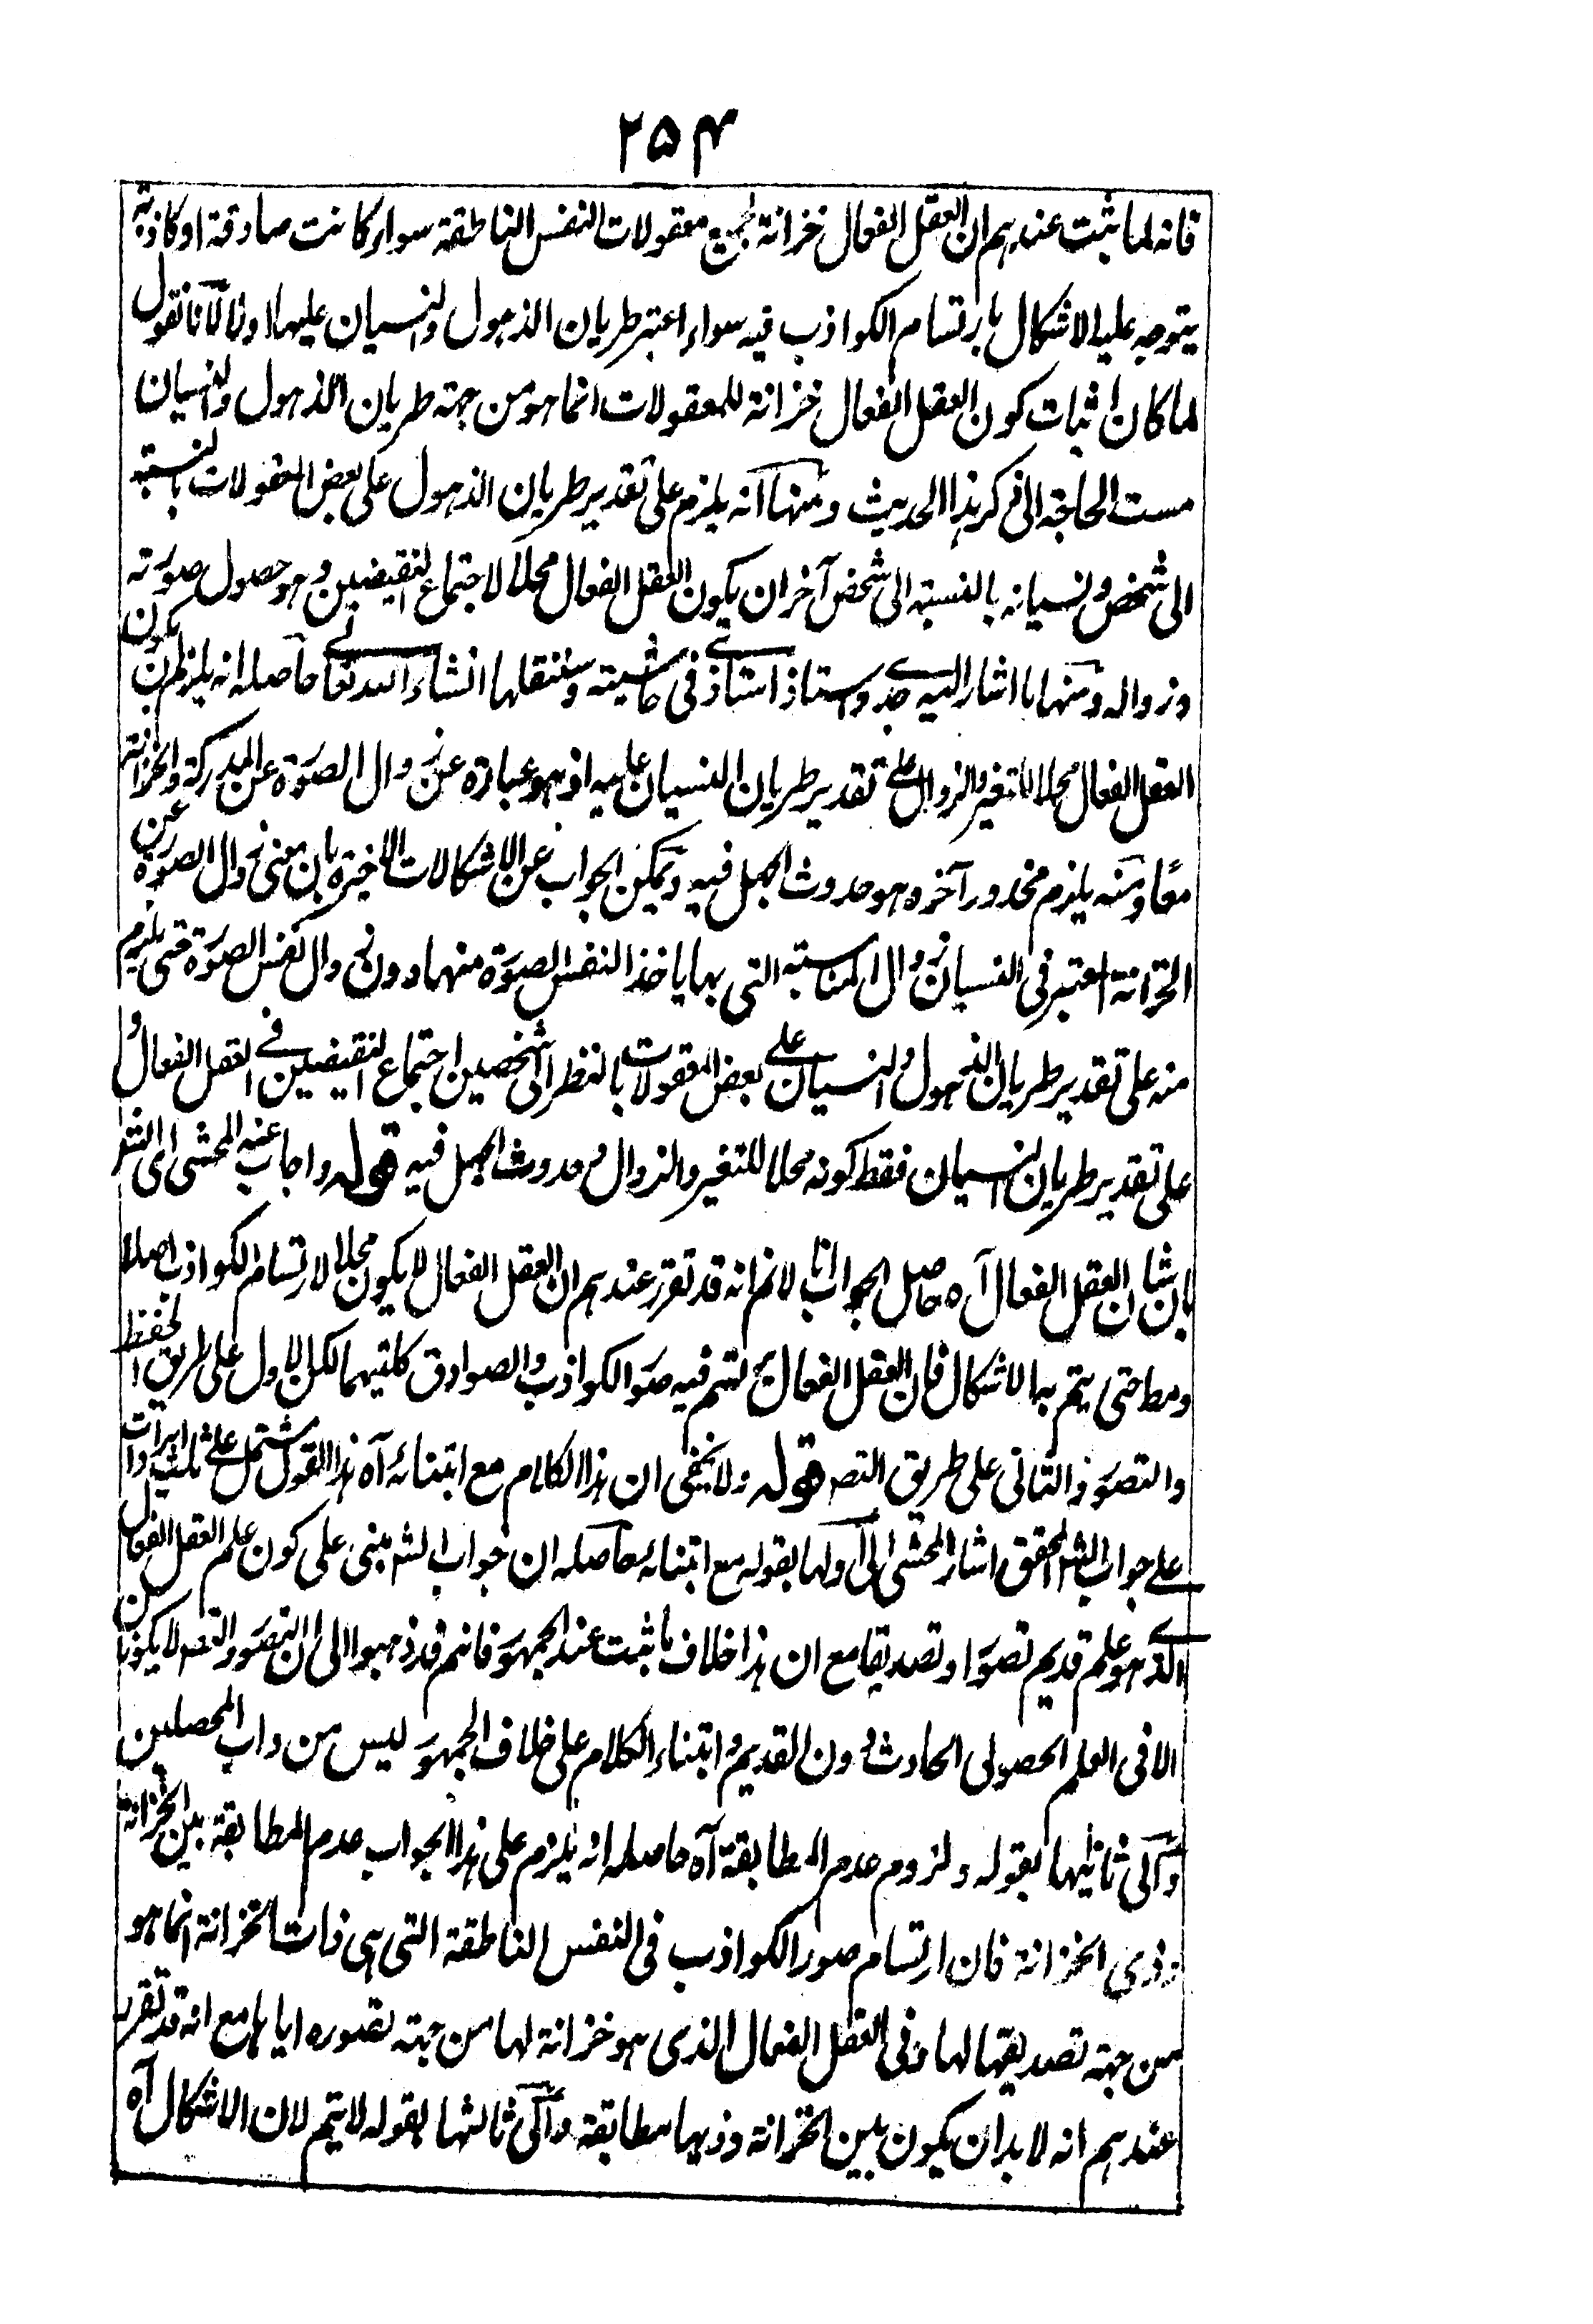 ۲۵۴
فانه لما ثبت عندهم ان العقل الفعال خزانة لجميع معقولات النفس الناطقة سواء كانت صادقة او كاذبة
يتوجه عليه الاشكال بارتسام الكواذب فيه سواء اعتبر طريان الذهول والنسيان عليها اولا لانا نقول
لما كان اثبات كون العقل الفعال خزانة للمعقولات انما هو من جهة طريان الذهول والنسيان
مست الحاجة الى ذكر هذا الحديث ومنها انه يلزم على تقدير طريان الذهول على بعض المعقولات بالنسبة
الى شخص ونسيانه بالنسبة الى شخص آخر ان يكون العقل الفعال محلا لاجتماع النقيضين وهو حصول صورته
وزواله ومنها ما اشار اليه جد واستاذ استاذي في حاشيته وسننقلها انشاء الله تعالى حاصله انه يلزم ان يكون
العقل الفعال محلا للتغير والزوال على تقدير طريان النسيان عليه اذ هو عبارة عن زوال الصورة عن المدركة والخزانة
معا ومنه يلزم محذور آخر وهو حدوث الجهل فيه ويمكن الجواب عن الاشكالات الاخيرة بان معنى زوال الصورة عن
الخزانة المعتبر في النسيان زوال المناسبة التي بها ياخذ النفس الصورة منها دون زوال نفس الصورة حتى يلزم
منه على تقدير طريان الذهول والنسيان على بعض المعقولات بالنظر الى شخصين اجتماع النقيضين في العقل الفعال و
على تقدير طريان النسيان فقط كونه محلا للتغير والزوال وحدوث الجهل فيه قوله واجاب عنه المحشي اى الش
بان شان العقل الفعال آه حاصل الجواب انا لانم انه قد تقرر عندهم ان العقل الفعال لا يكون محلا لارتسام الكواذب اصلا
ومط حتى يتم به الاشكال فان العقل الفعال يرتسم فيه صور الكواذب والصوادق كلتيهما لكن الاول على طريق الحفظ
والتصور والثاني على طريق التص قوله ولا يخفى ان هذا الكلام مع ابتنائه آه هذا القول مشتمل على ثلث ايرادات
على جواب الش المحقق اشار المحشي الى اولها بقوله مع ابتنائه حاصله ان جواب الش مبني على كون علم العقل الفعال
الذي هو علم قديم تصورا وتصديقا مع ان هذا خلاف ما ثبت عند الجمهور فانهم قد ذهبوا الى ان التصور والتص لا يكونان
الا في العلم الحصولى الحادث دون القديم وابتناء الكلام على خلاف الجمهور ليس من داب المحصلين
والى ثانيها بقوله ولزوم عدم المطابقة آه حاصله انه يلزم على هذا الجواب عدم المطابقة بين الخزانة
وذي الخزانة فان ارتسام صور الكواذب في النفس الناطقة التي هي ذات الخزانة انما هو
من جهة تصديقها لها وفي العقل الفعال الذي هو خزانة لها من جهة تصوره اياها مع انه قد تقرر
عندهم انه لابد ان يكون بين الخزانة وذيها مطابقة والى ثالثها بقوله لا يتم لان الاشكال آه